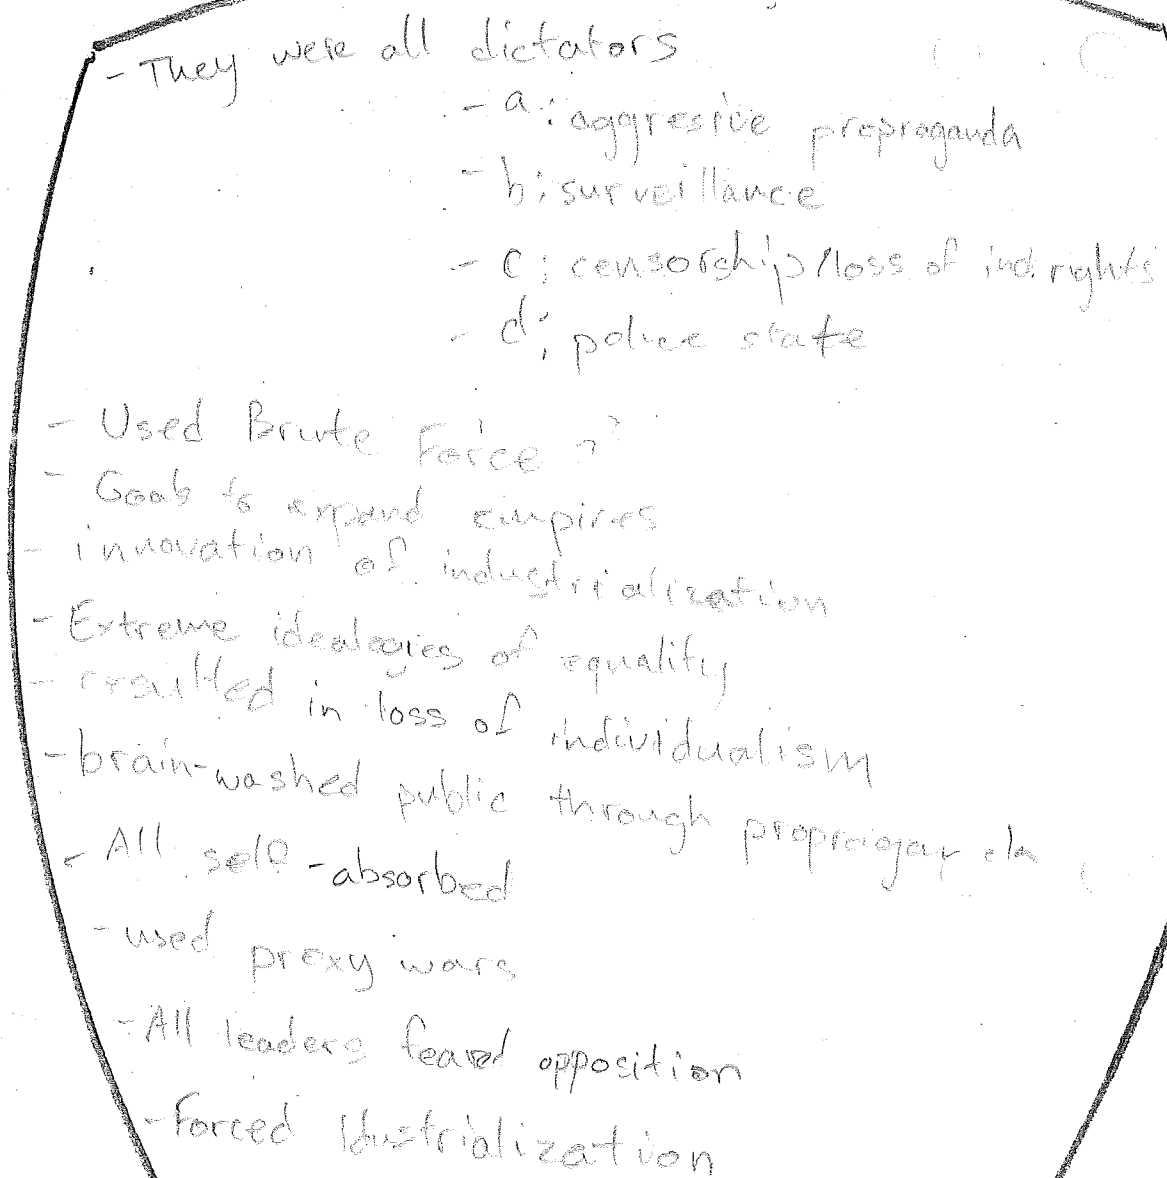 - They were all dictators
- a: aggresive propraganda
- b: surveillance
- c: censorship/loss of ind. rights
- d: police state
- Used Brute Force ??
- Goals to expand empires
- innovation of industrialization
- Extreme idealogies of equality
- resulted in loss of individualism
- brain-washed public through propraiganda
- All self-absorbed
- used proxy wars
- All leaders feared opposition
- Forced Idustrialization